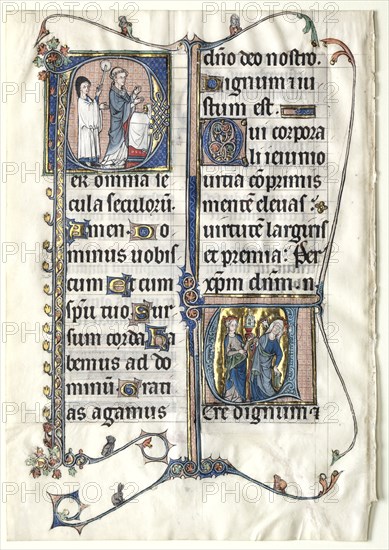 er omnia se
cula seculorū.
Amen. Do
minus vobis
cum Et cum
spū tuo. Sur
sum corda. ha
bemus ad do
minū. Grati
as agamus
dn̄o deo nostro.
Dignum et iu
stum est.
Qui corpora
li ieiunio
uitia cōprimis
mentē eleuas:
uirtutē largiris
et premia: Per
xp̄m dn̄m n.
Ere dignum ⁊
PHOTO